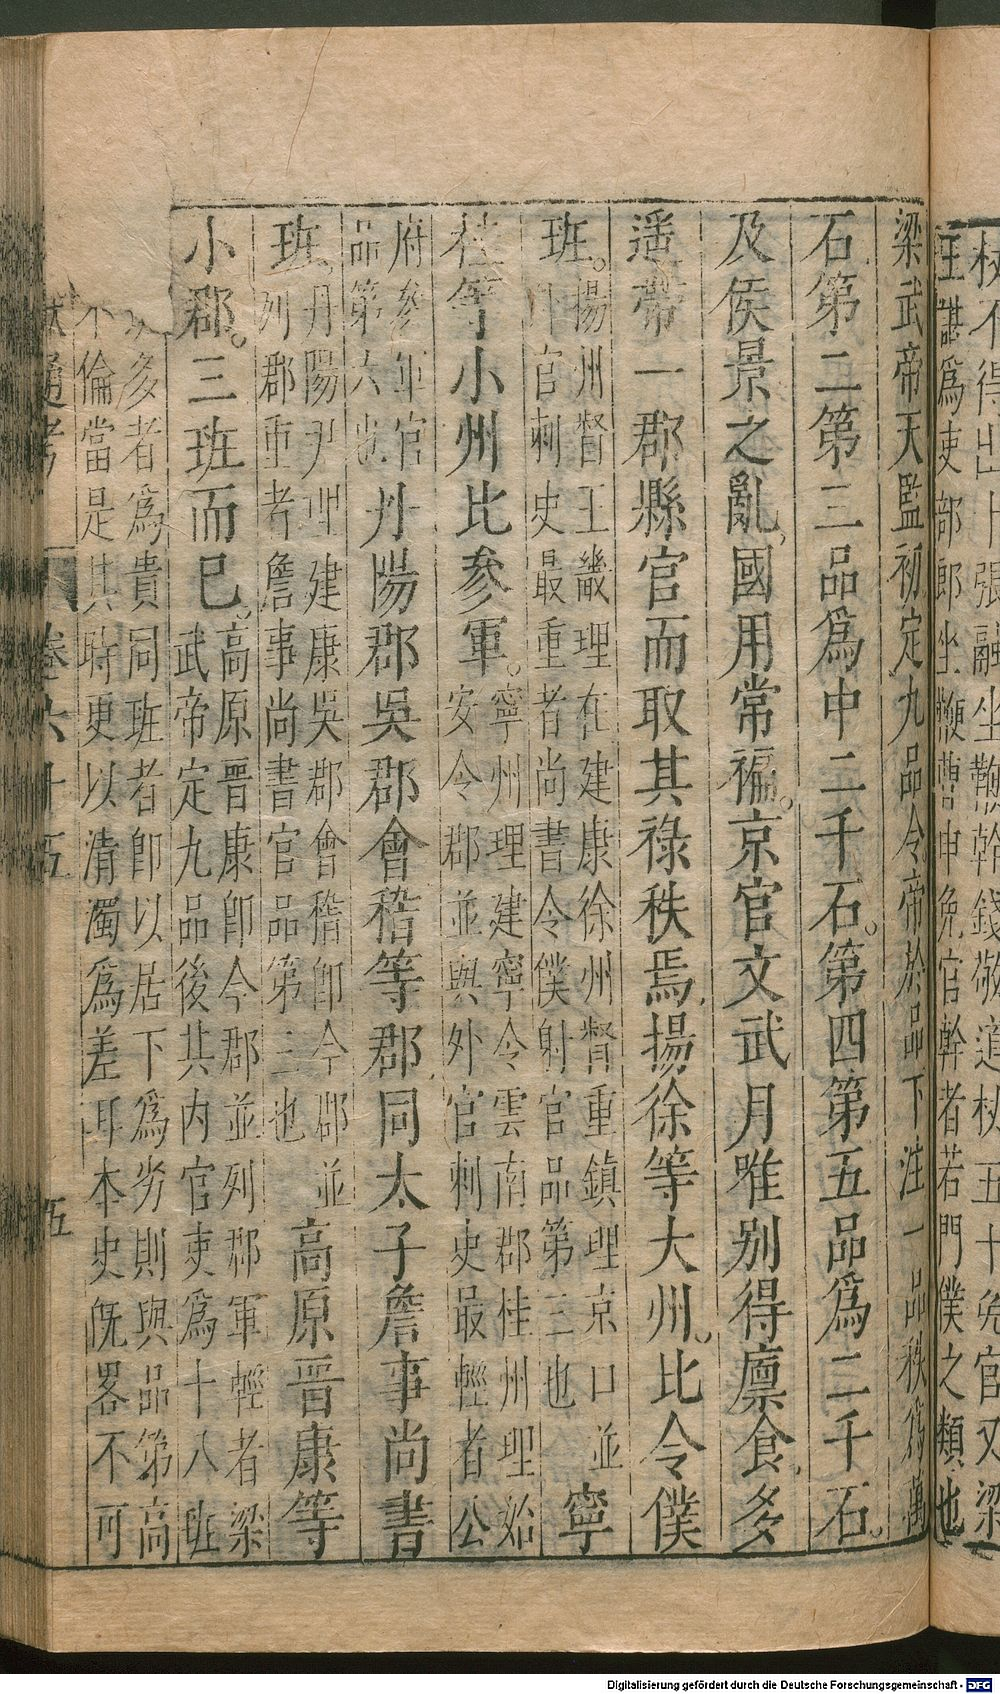 杖不得出十張融坐鞭幹錢敬道杖五十免官又梁
王諶爲吏部郎坐鞭曹中免官幹者若門僕之類也
梁武帝天監初定九品令帝於品下注一品秩爲萬
石第二第三品爲中二千石。第四第五品爲二千石。
及侯景之亂國用常褊。京官文武月唯别得廩食多
遥帶一郡縣官而取其祿秩焉揚徐等大州。比令僕
班。揚州督王畿理在建康徐州督重鎮理京口並
外官刺史最重者尚書令僕射官品第三也
寧
桂等小州比參軍。寧州理建寧令雲南郡桂州理始
安令郡並與外官刺史最輕者公
府參軍官
品第六也
丹陽郡吳郡會稽等郡同太子詹事尚書
班。丹陽尹理建康吳郡會稽卽今郡並
列郡重者詹事尚書官品第三也
高原晋康等
小郡。三班而已。高原晋康卽今郡並列郡軍輕者梁
武帝定九品後其内官吏爲十八班
多者爲貴同班者卽以居下爲劣則與品第高
不倫當是其時更以清濁爲差耳本史既畧不可
通考
卷六十五
五
Digitalisierung gefördert durch die Deutsche Forschungsgemeinschaft - DFG